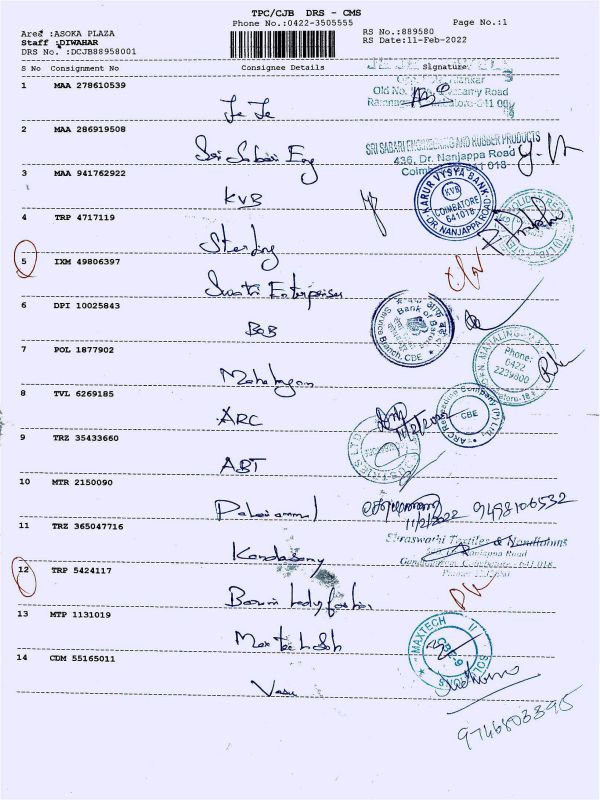 TPC/CJB DRS - CMS
Phone No.:0422-3505555
Page No.:1
Area :ASOKA PLAZA
Staff :DIWAHAR
DRS No. :DCJB88958001
RS No.:889580
RS Date:11-Feb-2022
S No Consignment No Consignee Details Signature
1 MAA 278610539
Je Je
Old No. Road
2 MAA 286919508
Sri Sabari Eng
SRI SABARI ENGINEERING AND RUBBER PRODUCTS
436, Dr. Nanjappa Road
3 MAA 941762922
KVB
KARUR VYSYA BANK
KVB
COIMBATORE
641018
DR. NANJAPPA ROAD
4 TRP 4717119
Sterling
5 IXM 49806397
Swathi Enterprises
6 DPI 10025843
BOB
Bank of Baroda
Service Branch, CBE
7 POL 1877902
Mahalingam
Phone:
0422
2239800
8 TVL 6269185
ARC
11/2/2022
CBE
9 TRZ 35433660
ABT
10 MTR 2150090
Palaniammal
11/2/2022 9498106532
11 TRZ 365047716
Kandasamy
Textiles &
Nanjappa Road
12 TRP 5424117
13 MTP 1131019
Maxtech
MAXTECH
14 CDM 55165011
Vasu
9746803395